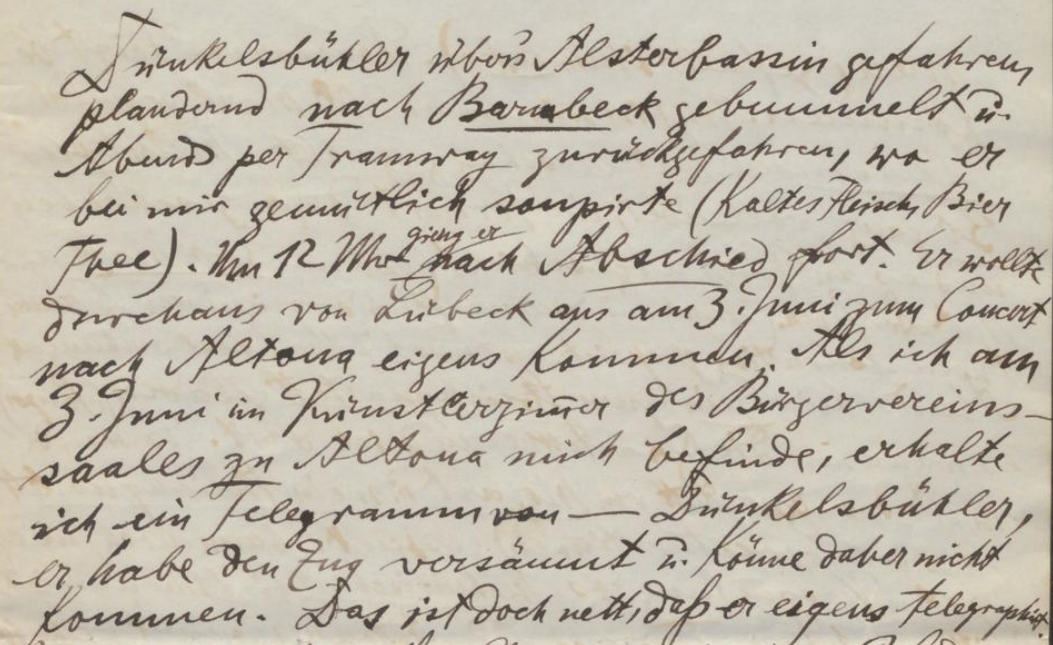 Dünkelsbühler übers Alsterbassin gefahren,
plaudernd nach Barmbeck gebummelt u.
Abends per Tramway zurückgefahren, wo er
bei mir gemütlich soupirte (Kaltes Fleisch, Bier
Thee). Um 12 Uhr gieng er nach Abschied fort. Er wollte
durchaus von Lübeck aus am 3. Juni zum Concert
nach Altona eigens kommen. Als ich am
3. Juni im Künstlerzim̅er des Bürgervereins-
saales zu Altona mich befinde, erhalte
ich ein Telegramm von — Dünkelsbühler,
er habe den Zug versäumt u. könne daher nicht
kommen. Das ist doch nett, daß er eigens telegraphirt.